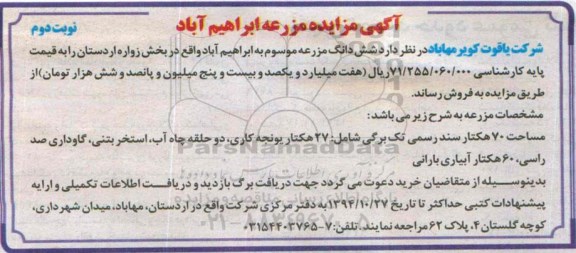 آگهی مزایده مزرعه ابراهیم آباد
نوبت دوم
شرکت یاقوت کویر مهاباد در نظر دارد شش دانگ مزرعه موسوم به ابراهیم آباد واقع در بخش زواره اردستان را به قیمت
پایه کارشناسی ۷۱/۲۵۵/۰۶۰/۰۰۰ ریال (هفت میلیارد و یکصد و بیست و پنج میلیون و پانصد و شش هزار تومان) از
طریق مزایده به فروش رساند.
مشخصات مزرعه به شرح زیر می باشد:
مساحت ۷۰ هکتار سند رسمی تک برگی شامل: ۲۷ هکتار یونجه کاری، دو حلقه چاه آب، استخر بتنی، گاوداری صد
راسی، ۶۰ هکتار آبیاری بارانی
بدینوسیله از متقاضیان خرید دعوت می گردد جهت دریافت برگ بازدید و دریافت اطلاعات تکمیلی و ارایه
پیشنهادات کتبی حداکثر تا تاریخ ۱۳۹۴/۱۰/۲۷ به دفتر مرکزی شرکت واقع در اردستان، مهاباد، میدان شهرداری،
کوچه گلستان ۴، پلاک ۶۲ مراجعه نمایند. تلفن: ۷-۰۳۱۵۴۴۰۳۷۶۵
ParsNamadData